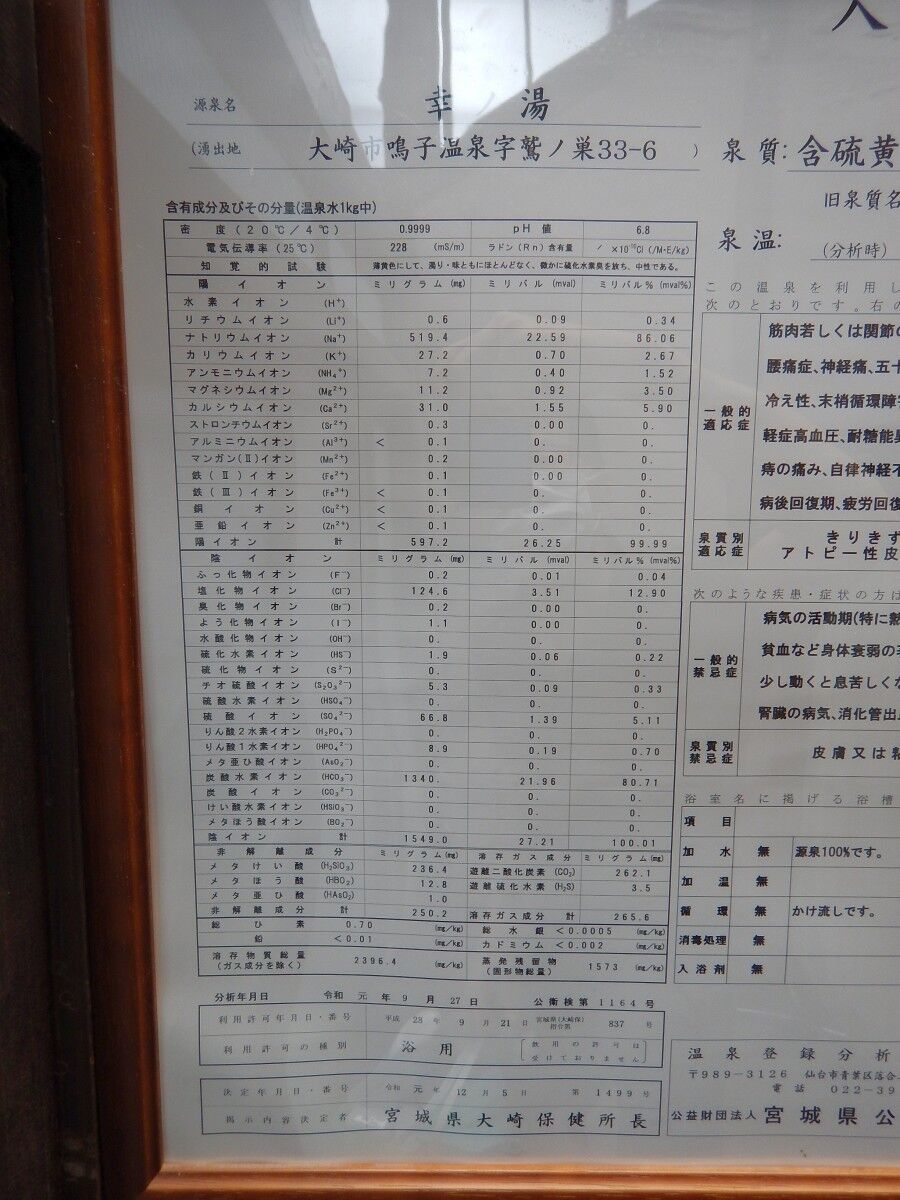 源泉名 幸ノ湯
(湧出地 大崎市鳴子温泉字鷲ノ巣33-6 )
含有成分及びその分量(温泉水1kg中)
密度(20℃/4℃) 0.9999 pH値 6.8
電気伝導率(25℃) 228 (mS/m) ラドン(Rn)含有量 / ×10⁻¹⁰Ci(/M・E/kg)
知覚的試験 薄黄色にして、濁り・味ともにほとんどなく、微かに硫化水素臭を放ち、中性である。
陽イオン ミリグラム(mg) ミリバル(mval) ミリバル%(mval%)
水素イオン (H⁺)
リチウムイオン (Li⁺) 0.6 0.09 0.34
ナトリウムイオン (Na⁺) 519.4 22.59 86.06
カリウムイオン (K⁺) 27.2 0.70 2.67
アンモニウムイオン (NH₄⁺) 7.2 0.40 1.52
マグネシウムイオン (Mg²⁺) 11.2 0.92 3.50
カルシウムイオン (Ca²⁺) 31.0 1.55 5.90
ストロンチウムイオン (Sr²⁺) 0.3 0.00 0.
アルミニウムイオン (Al³⁺) < 0.1 0. 0.
マンガン(Ⅱ)イオン (Mn²⁺) 0.2 0.00 0.
鉄(Ⅱ)イオン (Fe²⁺) 0.1 0.00 0.
鉄(Ⅲ)イオン (Fe³⁺) < 0.1 0. 0.
銅イオン (Cu²⁺) < 0.1 0. 0.
亜鉛イオン (Zn²⁺) < 0.1 0. 0.
陽イオン 計 597.2 26.25 99.99
陰イオン ミリグラム(mg) ミリバル(mval) ミリバル%(mval%)
ふっ化物イオン (F⁻) 0.2 0.01 0.04
塩化物イオン (Cl⁻) 124.6 3.51 12.90
臭化物イオン (Br⁻) 0.2 0.00 0.
よう化物イオン (I⁻) 1.1 0.00 0.
水酸化物イオン (OH⁻) 0. 0. 0.
硫化水素イオン (HS⁻) 1.9 0.06 0.22
硫化物イオン (S²⁻) 0. 0. 0.
チオ硫酸イオン (S₂O₃²⁻) 5.3 0.09 0.33
硫酸水素イオン (HSO₄⁻) 0. 0. 0.
硫酸イオン (SO₄²⁻) 66.8 1.39 5.11
りん酸2水素イオン (H₂PO₄⁻) 0. 0. 0.
りん酸1水素イオン (HPO₄²⁻) 8.9 0.19 0.70
メタ亜ひ酸イオン (AsO₂⁻) 0. 0. 0.
炭酸水素イオン (HCO₃⁻) 1340. 21.96 80.71
炭酸イオン (CO₃²⁻) 0. 0. 0.
けい酸水素イオン (HSiO₃⁻) 0. 0. 0.
メタほう酸イオン (BO₂⁻) 0. 0. 0.
陰イオン 計 1549.0 27.21 100.01
非解離成分 ミリグラム(mg) 溶存ガス成分 ミリグラム(mg)
メタけい酸 (H₂SiO₃) 236.4 遊離二酸化炭素 (CO₂) 262.1
メタほう酸 (HBO₂) 12.8 遊離硫化水素 (H₂S) 3.5
メタ亜ひ酸 (HAsO₂) 1.0
非解離成分 計 250.2 溶存ガス成分 計 265.6
総ひ素 0.70 (mg/kg) 総水銀 <0.0005 (mg/kg)
鉛 <0.01 (mg/kg) カドミウム <0.002 (mg/kg)
溶存物質総量 (ガス成分を除く) 2396.4 (mg/kg) 蒸発残留物 (固形物総量) 1573 (mg/kg)
分析年月日 令和 元 年 9 月 27 日 公衛検第 1164 号
利用許可年月日・番号 平成 28 年 9 月 21 日 宮城県(大崎保)指令第 837 号
利用許可の種別 浴用 [飲用の許可は受けておりません]
決定年月日・番号 令和 元 年 12 月 5 日 第 1499 号
掲示内容決定者 宮城県大崎保健所長
泉質: 含硫黄
旧泉質名
泉温: (分析時)
この温泉を利用し
次のとおりです。右の
一般的適応症
筋肉若しくは関節の
腰痛症、神経痛、五十
冷え性、末梢循環障
軽症高血圧、耐糖能異
痔の痛み、自律神経不
病後回復期、疲労回復
泉質別適応症
きりきず
アトピー性皮
次のような疾患・症状の方は
一般的禁忌症
病気の活動期(特に熱
貧血など身体衰弱の
少し動くと息苦しくな
腎臓の病気、消化管出
泉質別禁忌症
皮膚又は粘
浴室名に掲げる浴槽
項目
加水 無 源泉100%です。
加温 無
循環 無 かけ流しです。
消毒処理 無
入浴剤 無
温泉登録分析
〒989-3126 仙台市青葉区落合
電話 022-39
公益財団法人 宮城県公